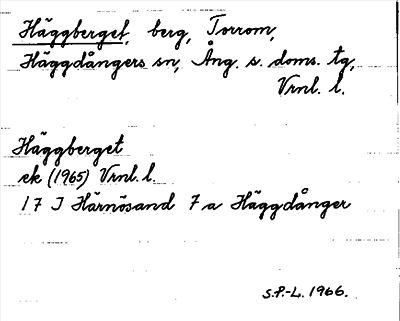 Häggberget, berg, Torrom,
Häggdångers sn, Ång. s. doms. tg,
Vrnl. l.
Häggberget
ek (1965) Vrnl. l.
17 J Härnösand 7 a Häggdånger
S.P.-L. 1966.